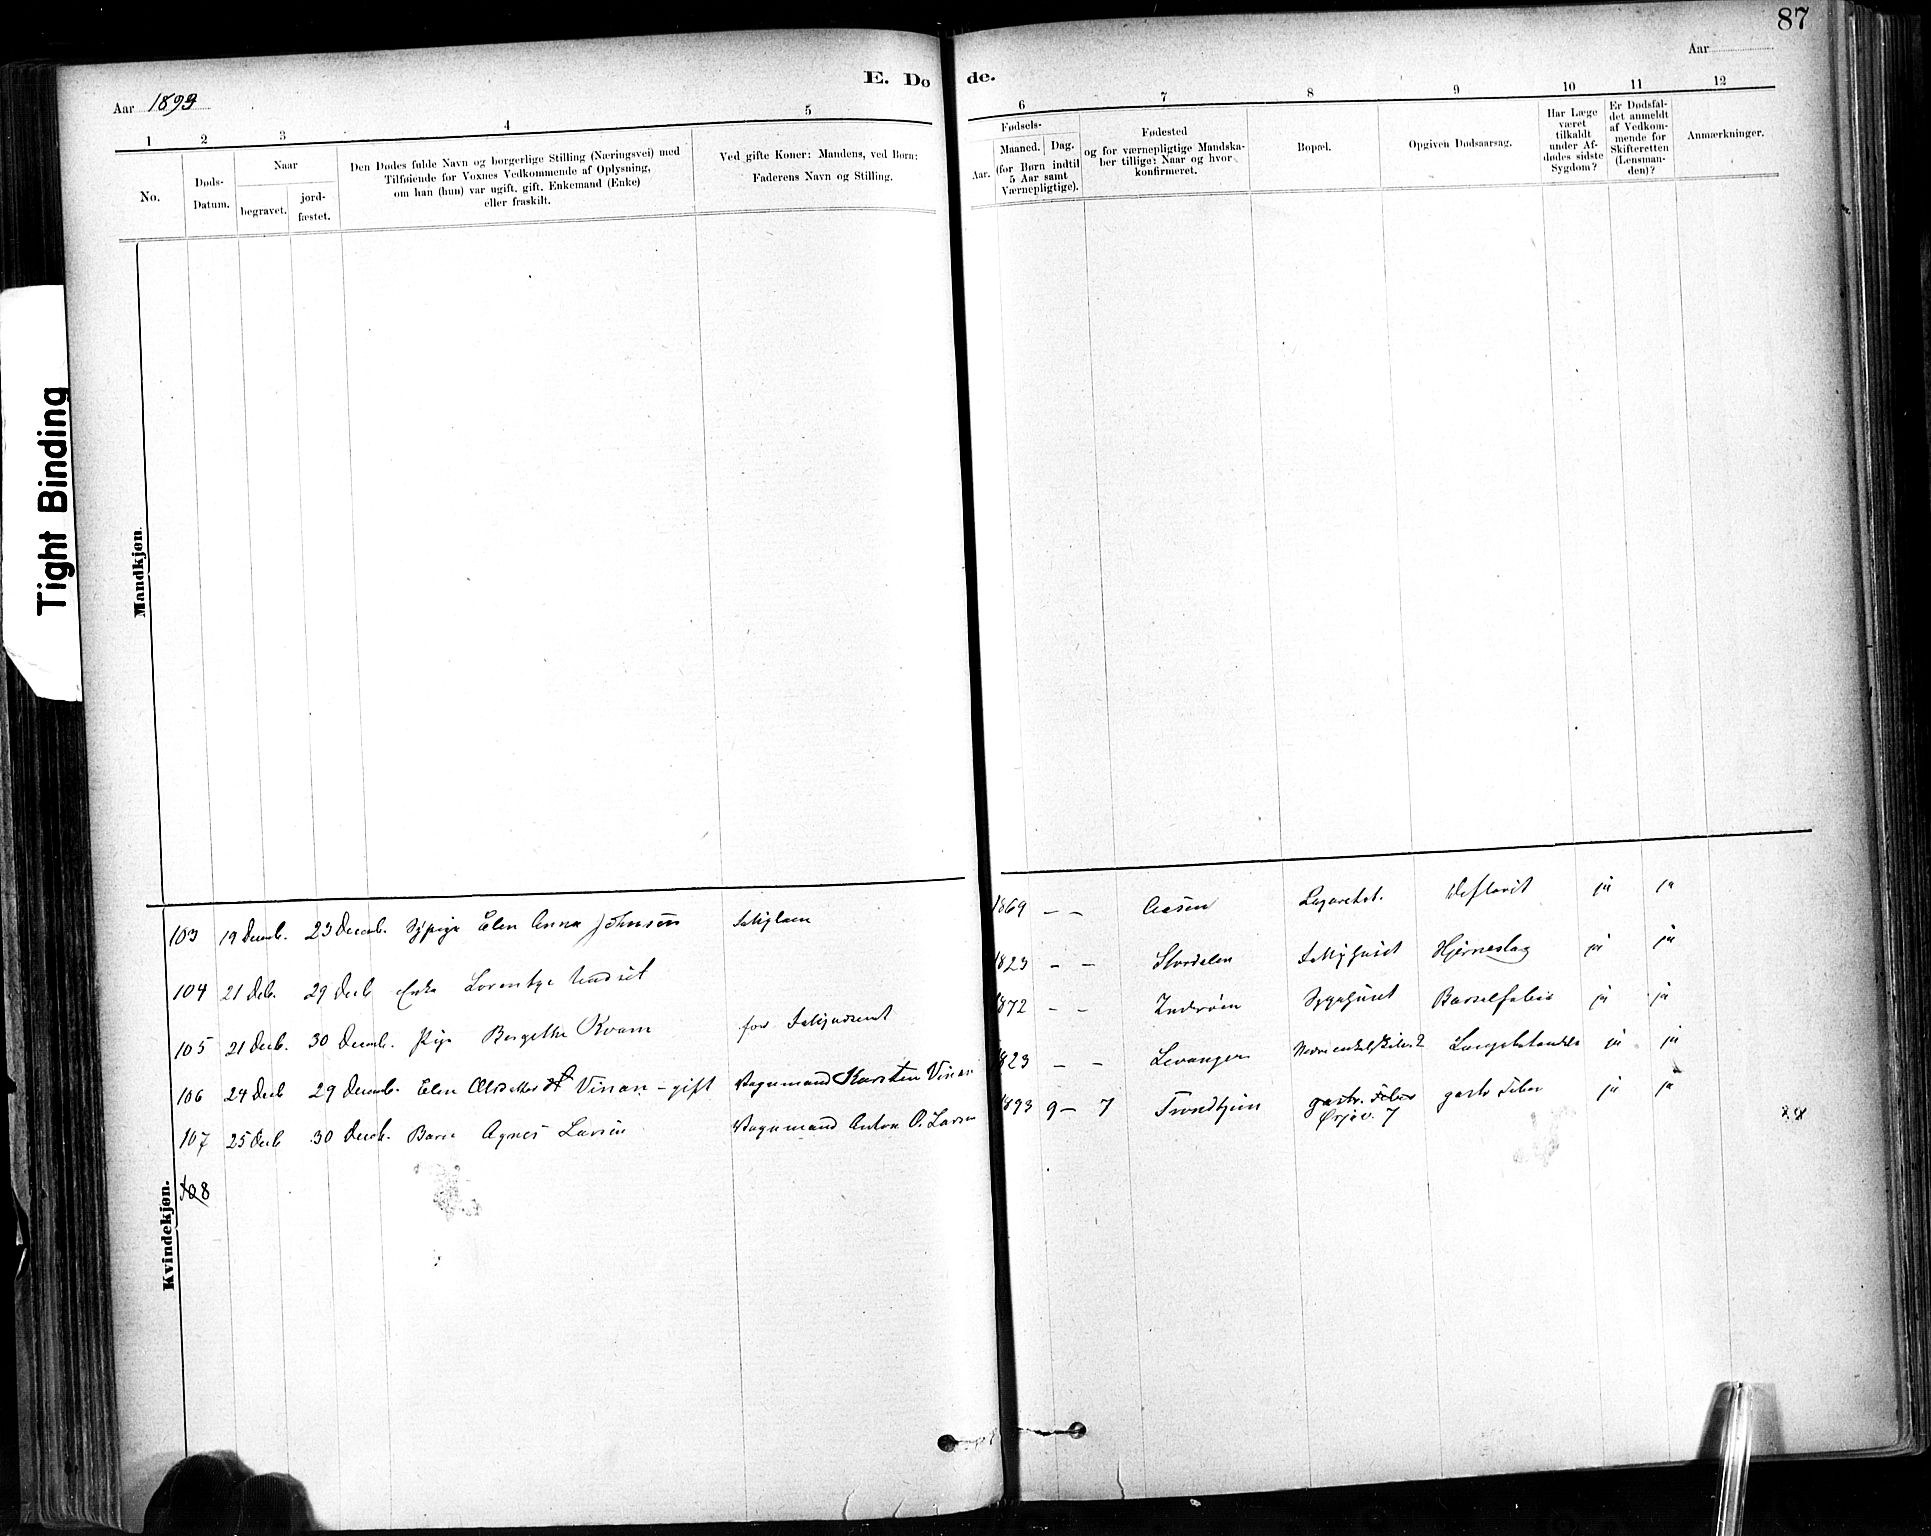 87
Aar
E. Do de.
Aar 1893
1 2 3 4 5 6 7 8 9 10 11 12
No.
Døds-
Datum.
Naar
begravet.
jord-
fæstet.
Den Dødes fulde Navn og borgerlige Stilling (Næringsvei) med
Tilføiende for Voxnes Vedkommende af Oplysning,
om han (hun) var ugift, gift, Enkemand (Enke)
eller fraskilt.
Ved gifte Koner: Mandens, ved Børn:
Faderens Navn og Stilling.
Fødsels-
Aar.
Maaned. Dag.
(for Børn indtil
5 Aar samt
Værnepligtige).
Fødested
og for værnepligtige Mandska-
ber tillige: Naar og hvor
konfirmeret.
Bopæl.
Opgiven Dødsaarsag.
Har Læge
været
tilkaldt
under Af-
dødes sidste
Sygdom?
Er Dødsfal-
det anmeldt
af Vedkom-
mende for
Skifteretten
(Lensman-
den)?
Anmærkninger.
Tight Binding
Mandkjøn.
Kvindekjøn.
103 19 Decmb. 23 Decmb. Sypige Elen Anna Johnsen 1869 – – Aasen Lazarethet. ja ja
104 21 Deb. 29 Decb Enke 1823 – – Stordalen Hjerneslag ja ja
105 21 Decb. 30 Decmb. Pige Bergethe Kvam 1872 – – Inderøen Sygehuset Barselfeber ja ja
106 24 Decb 29 Decmb. Elen Vinan – gift Vognmand Karsten Vinan 1823 – – Levanger ja ja
107 25 Decb 30 Decb. Barn Agnes Larsen Vognmand Anton O. Larsen 1893 9 – 7 Trondhjem gastr. Feber gastr Feber ja ja
Ørjav. 7
108